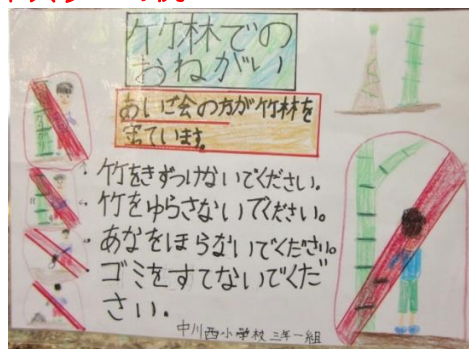 竹林での
おねがい
あいご会の方が竹林を
守ています。
・竹をきずつけないでください。
・竹をゆらさないでください。
・あなをほらないでください。
・ゴミをすてないでくだ
さい.
中川西小学校 三年一組